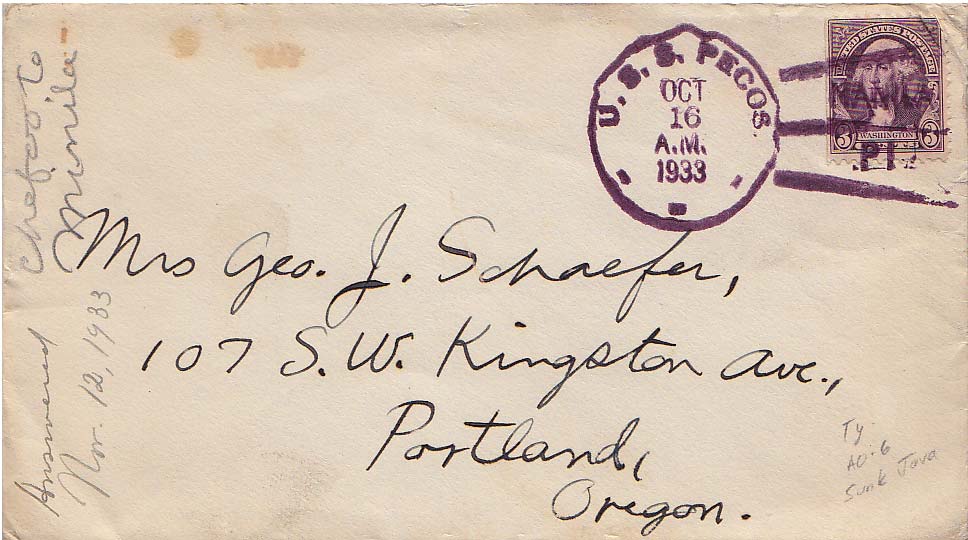 U.S.S. PECOS
OCT
16
A.M.
1933
UNITED STATES POSTAGE
MANILA
3 WASHINGTON 3
P.I.
Chefoo to
Manila -
Mrs Geo. J. Schaefer,
107 S.W. Kingston Ave.,
Portland,
Oregon.
Answered
Nov. 12, 1933
Ty
AO-6
Sunk Java